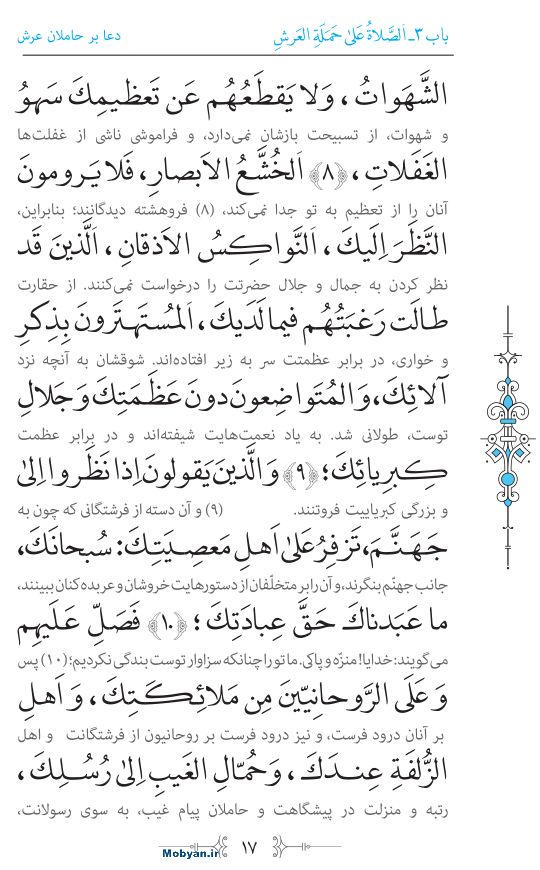 باب ۳ـ اَلصَّلاةُ عَلىٰ حَمَلَةِ العَرشِ
دعا بر حاملان عرش
الشَّهَواتُ ، وَلا يَقطَعُهُم عَن تَعظيمِكَ سَهوُ
و شهوات، از تسبیحت بازشان نمی‌دارد، و فراموشی ناشی از غفلت‌ها
الغَفَلاتِ ، ﴿۸﴾ اَلخُشَّعُ الاَبصارِ ، فَلا يَرومونَ
آنان را از تعظیم به تو جدا نمی‌کند، (۸) فروهشته دیدگانند؛ بنابراین،
النَّظَرَ اِلَيكَ ، اَلنَّواكِسُ الاَذقانِ ، اَلَّذينَ قَد
نظر کردن به جمال و جلال حضرتت را درخواست نمی‌کنند. از حقارت
طالَت رَغبَتُهُم فيما لَدَيكَ ، اَلمُستَهتَرونَ بِذِكرِ
و خواری، در برابر عظمتت سر به زیر افتاده‌اند. شوقشان به آنچه نزد
آلائِكَ ، وَالمُتَواضِعونَ دونَ عَظَمَتِكَ وَ جَلالِ
توست، طولانی شد. به یاد نعمت‌هایت شیفته‌اند و در برابر عظمت
كِبرِيائِكَ ؛ ﴿۹﴾ وَ الَّذينَ يَقولونَ اِذا نَظَروا اِلىٰ
و بزرگی کبریاییت فروتنند. (۹) و آن دسته از فرشتگانی که چون به
جَهَنَّمَ ، تَزفِرُ عَلىٰ اَهلِ مَعصِيَتِكَ : سُبحانَكَ ،
جانب جهنّم بنگرند، و آن را بر متخلّفان از دستورهایت خروشان و عربده‌کنان ببینند،
ما عَبَدناكَ حَقَّ عِبادَتِكَ ؛ ﴿۱۰﴾ فَصَلِّ عَلَيهِم
می‌گویند: خدایا! منزّه و پاکی. ما تو را چنانکه سزاوار توست بندگی نکردیم؛ (۱۰) پس
وَ عَلَى الرَّوحانِيّينَ مِن مَلائِكَتِكَ ، وَ اَهلِ
بر آنان درود فرست، و نیز درود فرست بر روحانیون از فرشتگانت و اهل
الزُّلفَةِ عِندَكَ ، وَ حُمّالِ الغَيبِ اِلىٰ رُسُلِكَ ،
رتبه و منزلت در پیشگاهت و حاملان پیام غیب، به سوی رسولانت،
۱۷
Mobyan.ir